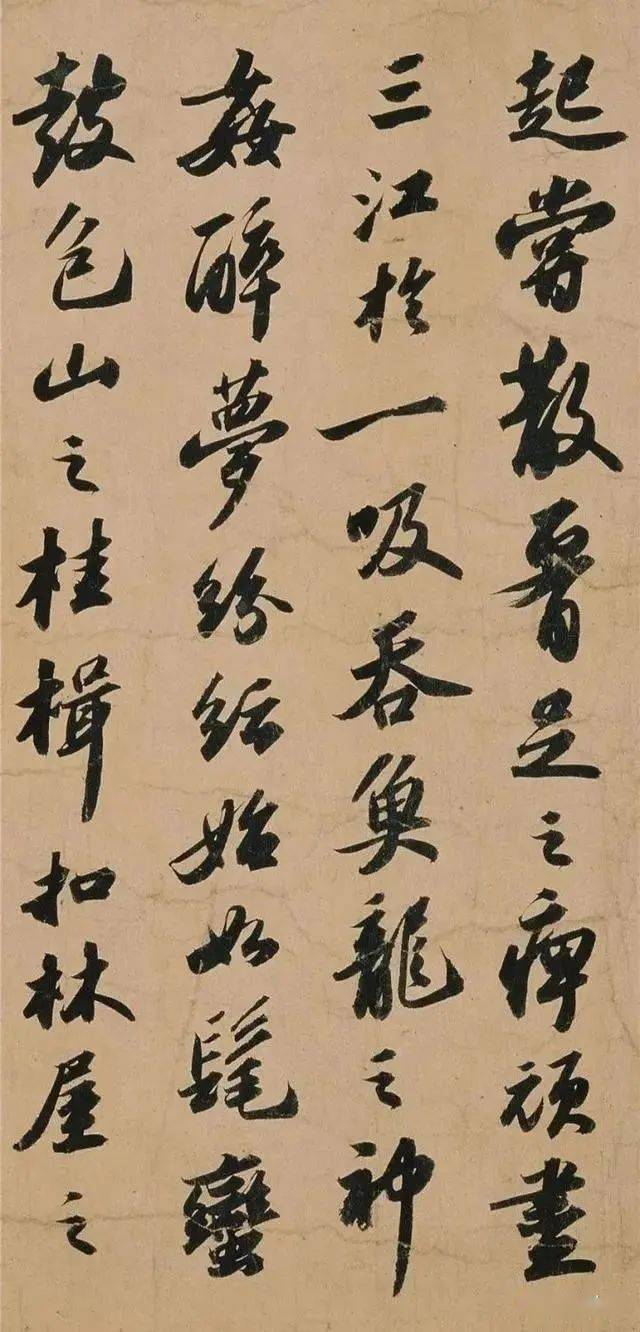 起嘗散腎足之痺頑盡
三江於一吸吞魚龍之神
姦醉夢紛紜始如髦蠻
鼓包山之桂楫扣林屋之